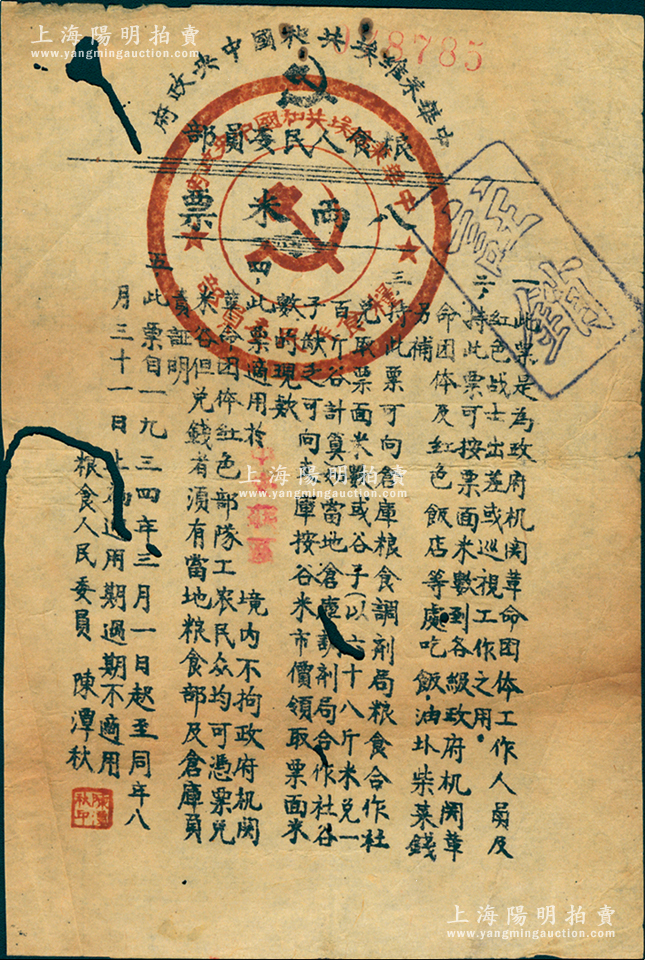 上海陽明拍賣
www.yangmingauction.com
8785
中華苏維埃共和國中央政府
粮食人民委員部
八两米票
中華蘇維埃共和國中央政府
粮食人民委員部
一、此票是為政府机関革命团体工作人員及
红色战士出差或巡視工作之用。
二、持此票可按票面米數到各級政府机関革
命团体及红色飯店等處吃飯,油盐柴菜錢
另補
三、持此票可向倉庫粮食調剂局粮食合作社
兑取票面米數或谷子(以六十八斤米兑一
百斤谷計算當地倉庫調剂局合作社谷
子缺乏可向庫按谷米市價領取票面米
數的現款
四、此票適用於 境内不拘政府机関
革命团体红色部隊工农民众均可憑票兑
米谷但兑錢者須有當地粮食部及倉庫員
責証明
五 此票自一九三四年三月一日起至同年八
月三十一日止為適用期過期不適用
粮食人民委員 陳潭秋
陳潭秋印
上海陽明拍賣
www.yangmingauction.com
上海陽明拍賣
www.yangmingauction.com